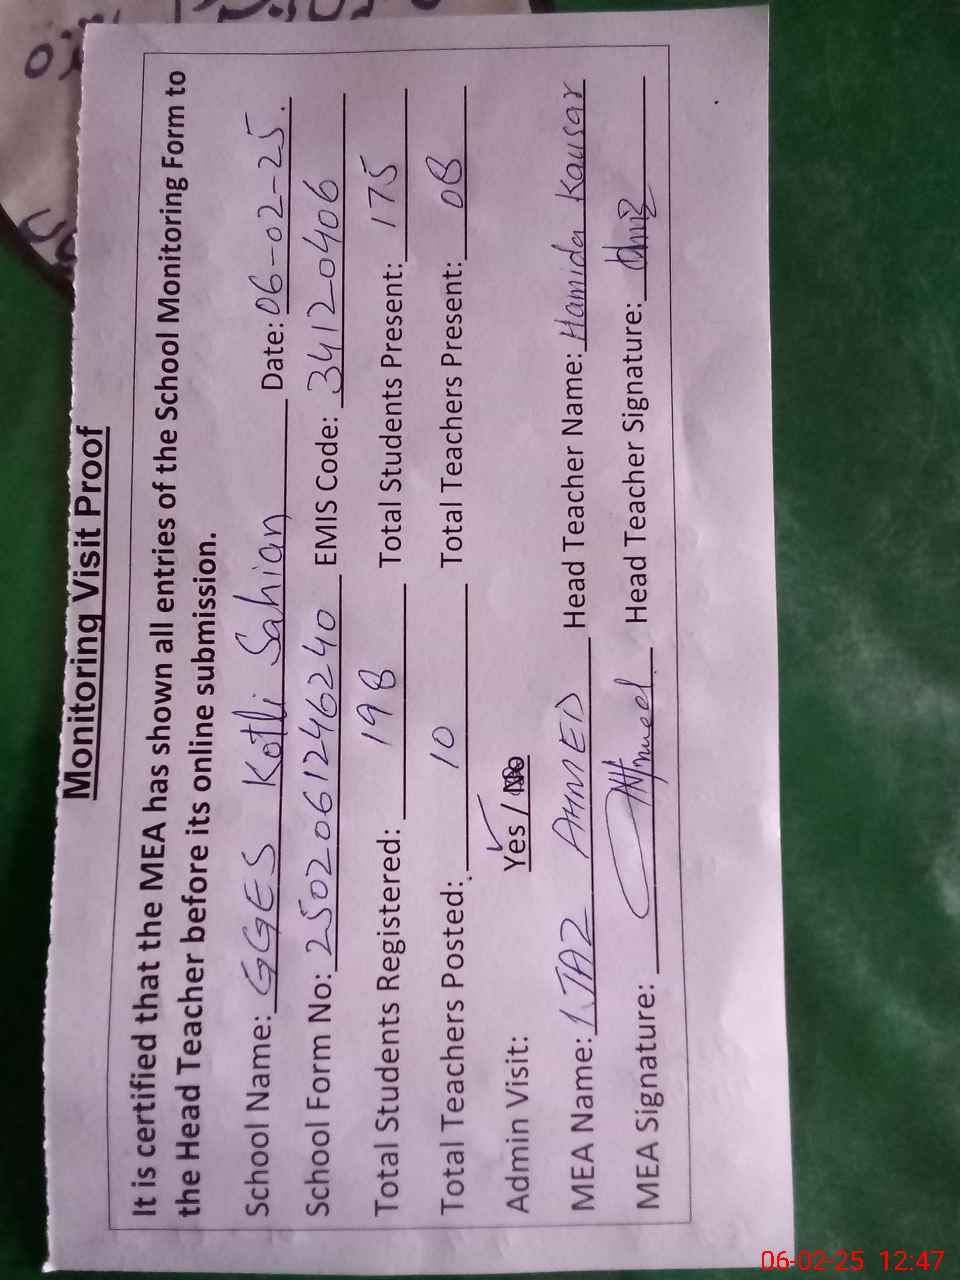 Monitoring Visit Proof
It is certified that the MEA has shown all entries of the School Monitoring Form to
the Head Teacher before its online submission.
School Name: GGES Kotli Sahian Date: 06-02-25.
School Form No: 2502061246240 EMIS Code: 34120406
Total Students Registered: 198 Total Students Present: 175
Total Teachers Posted: 10 Total Teachers Present: 08
Admin Visit: Yes / No
MEA Name: IJAZ AHMED Head Teacher Name: Hamida Kausar
MEA Signature: Head Teacher Signature:
06-02-25 12:47